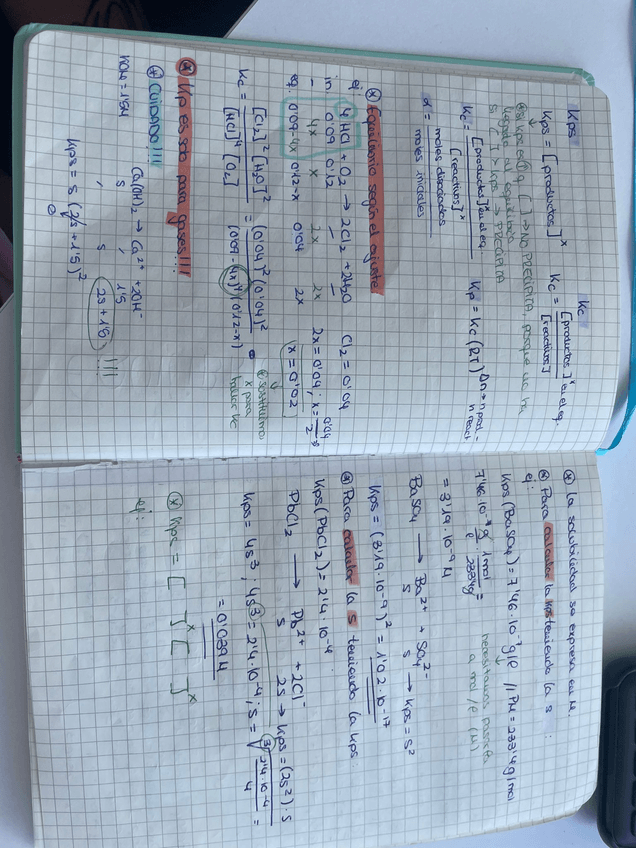 Kps
Kc
Kps = [productos]ˣ
Kc = [productos]ˣ en el eq.
[reactivos]
Si Kps > [ ] → NO PRECIPITA, porque no ha
llegado al equilibrio
Si [ ] > Kps → PRECIPITA
Kc = [productos]ˣ en el eq.
[reactivos]ˣ
Kp = Kc (RT)^Δn → n prod -
n react
α = moles disociados
moles iniciales
* Equilibrio según el ajuste
ej: 4HCl + O₂ → 2Cl₂ + 2H₂O
Cl₂ = 0'04
in 0'09 0'12 — —
- 4x x 2x 2x
2x = 0'04; x = 0'04/2 →
eq: 0'09-4x 0'12-x 0'04 2x
x = 0'02
Kc = [Cl₂]² [H₂O]² / [HCl]⁴ [O₂] = (0'04)² (0'04)² / (0'09-4x)⁴ (0'12-x) =
* sustituimos
x para
hallar Kc
* Kp es solo para gases!!!
* CUIDADO!!!
Ca(OH)₂ → Ca²⁺ + 2OH⁻
s , 1'5
, s 2s + 1'5 !!!
Kps = s (2s + 1'5)²
* La solubilidad se expresa en M.
* Para calcular la Kps teniendo la s:
ej:
Kps (BaSO₄) = 7'46·10⁻⁷ g/l // PM = 233'4 g/mol
7'46·10⁻⁷ g/l · 1 mol/233'4g =
necesitamos pasarla
a mol/l (M)
= 3'19·10⁻⁹ M
BaSO₄ → Ba²⁺ + SO₄²⁻
s s → Kps = s²
Kps = (3'19·10⁻⁹)² = 1'02·10⁻¹⁷
* Para calcular la s teniendo la Kps:
Kps (PbCl₂) = 2'4·10⁻⁴
PbCl₂ → Pb²⁺ + 2Cl⁻
s 2s → Kps = (2s²)·s
Kps = 4s³; 4s³ = 2'4·10⁻⁴; s = ³√2'4·10⁻⁴/4 =
= 0'039 M
* Kps = [ ]ˣ [ ]ˣ
ej: